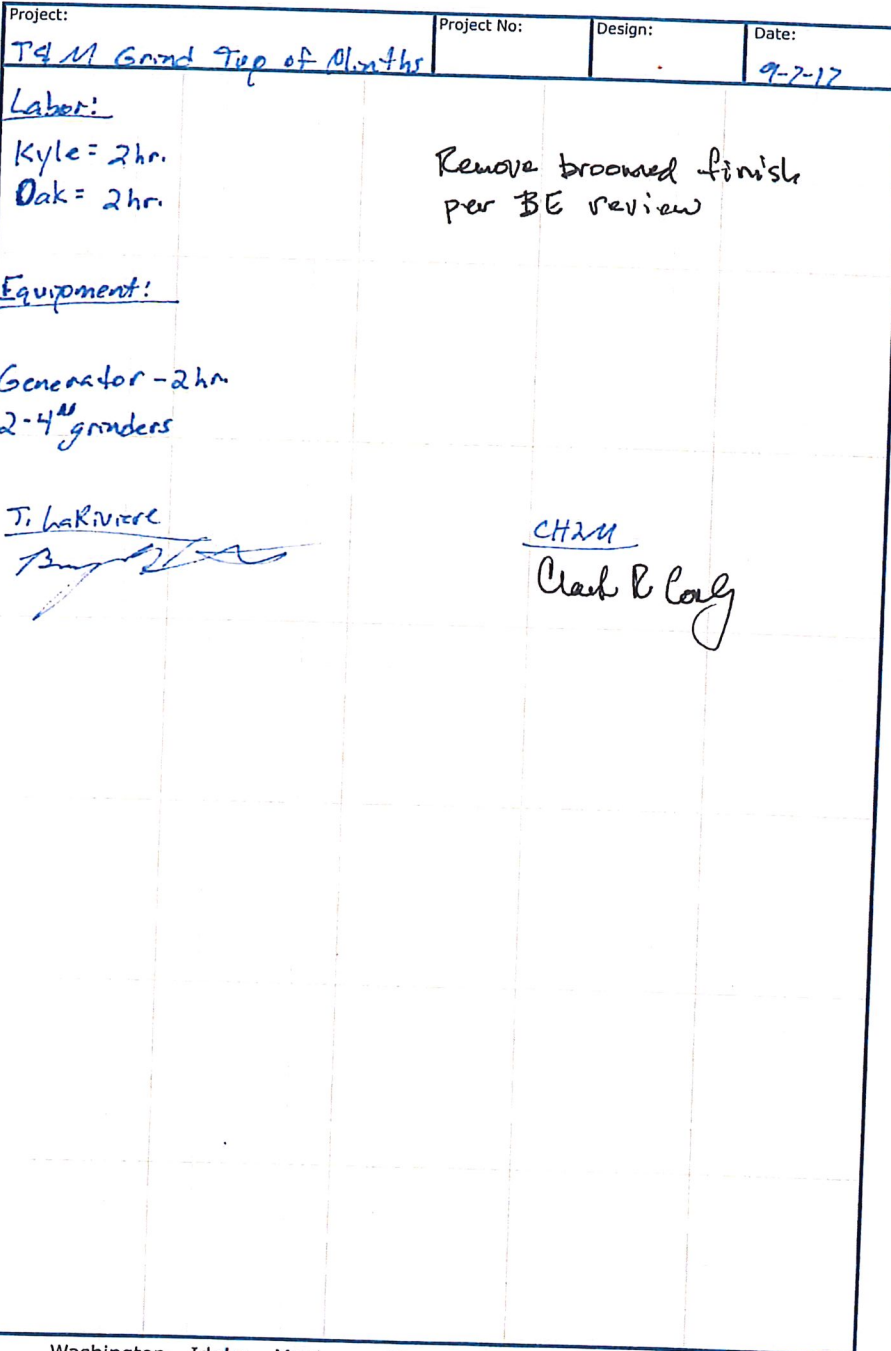 Project:
T&M Grind Top of Plinths
Project No:
Design:
Date:
9-7-17
Labor:
Kyle = 2 hr.
Dak = 2 hr.
Remove broomed finish
per BE review
Equipment:
Generator - 2 hr.
2-4" grinders
T. LaRiviere
CH2M
Washington